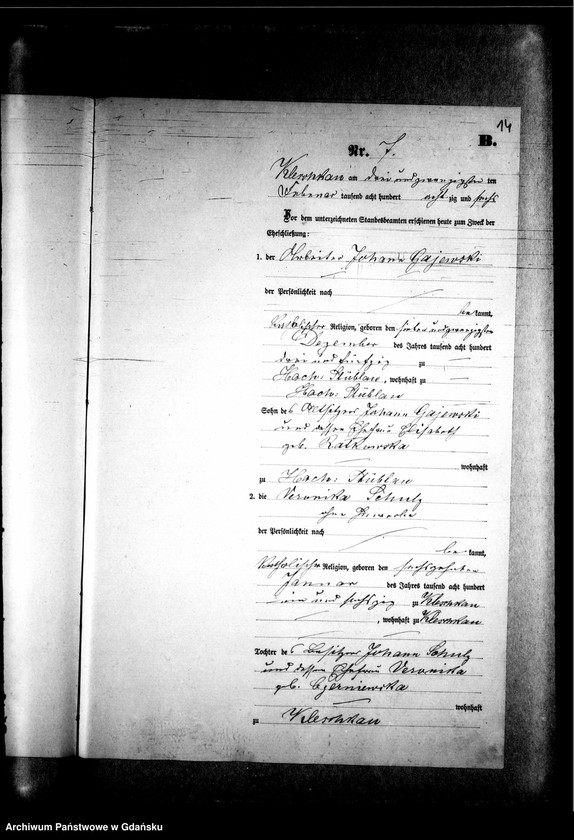 14
B.
Nr. 7.
Kleschkau am drei und zwanzigsten ten
Februar tausend acht hundert acht zig und sechs
Vor dem unterzeichneten Standesbeamten erschienen heute zum Zweck der
Eheschließung:
1. der Arbeiter Johann Gajewski
der Persönlichkeit nach
be kannt,
katholischer Religion, geboren den sieben und zwanzigsten
Dezember des Jahres tausend acht hundert
drei und fünfzig zu
Hoch Stüblau, wohnhaft zu
Hoch Stüblau
Sohn des Altsitzers Johann Gajewski
und dessen Ehefrau Elisabeth
geb. Ratkowska
wohnhaft
zu Hoch Stüblau
2. die Veronika Schulz
ohne Gewerbe
der Persönlichkeit nach
be kannt,
katholischer Religion, geboren den sechszehnten
Januar des Jahres tausend acht hundert
ein und sechszig zu Kleschkau
, wohnhaft zu Kleschkau
Tochter des Besitzers Johann Schulz
und dessen Ehefrau Veronika
geb. Czerniewska
wohnhaft
zu Kleschkau
Archiwum Państwowe w Gdańsku